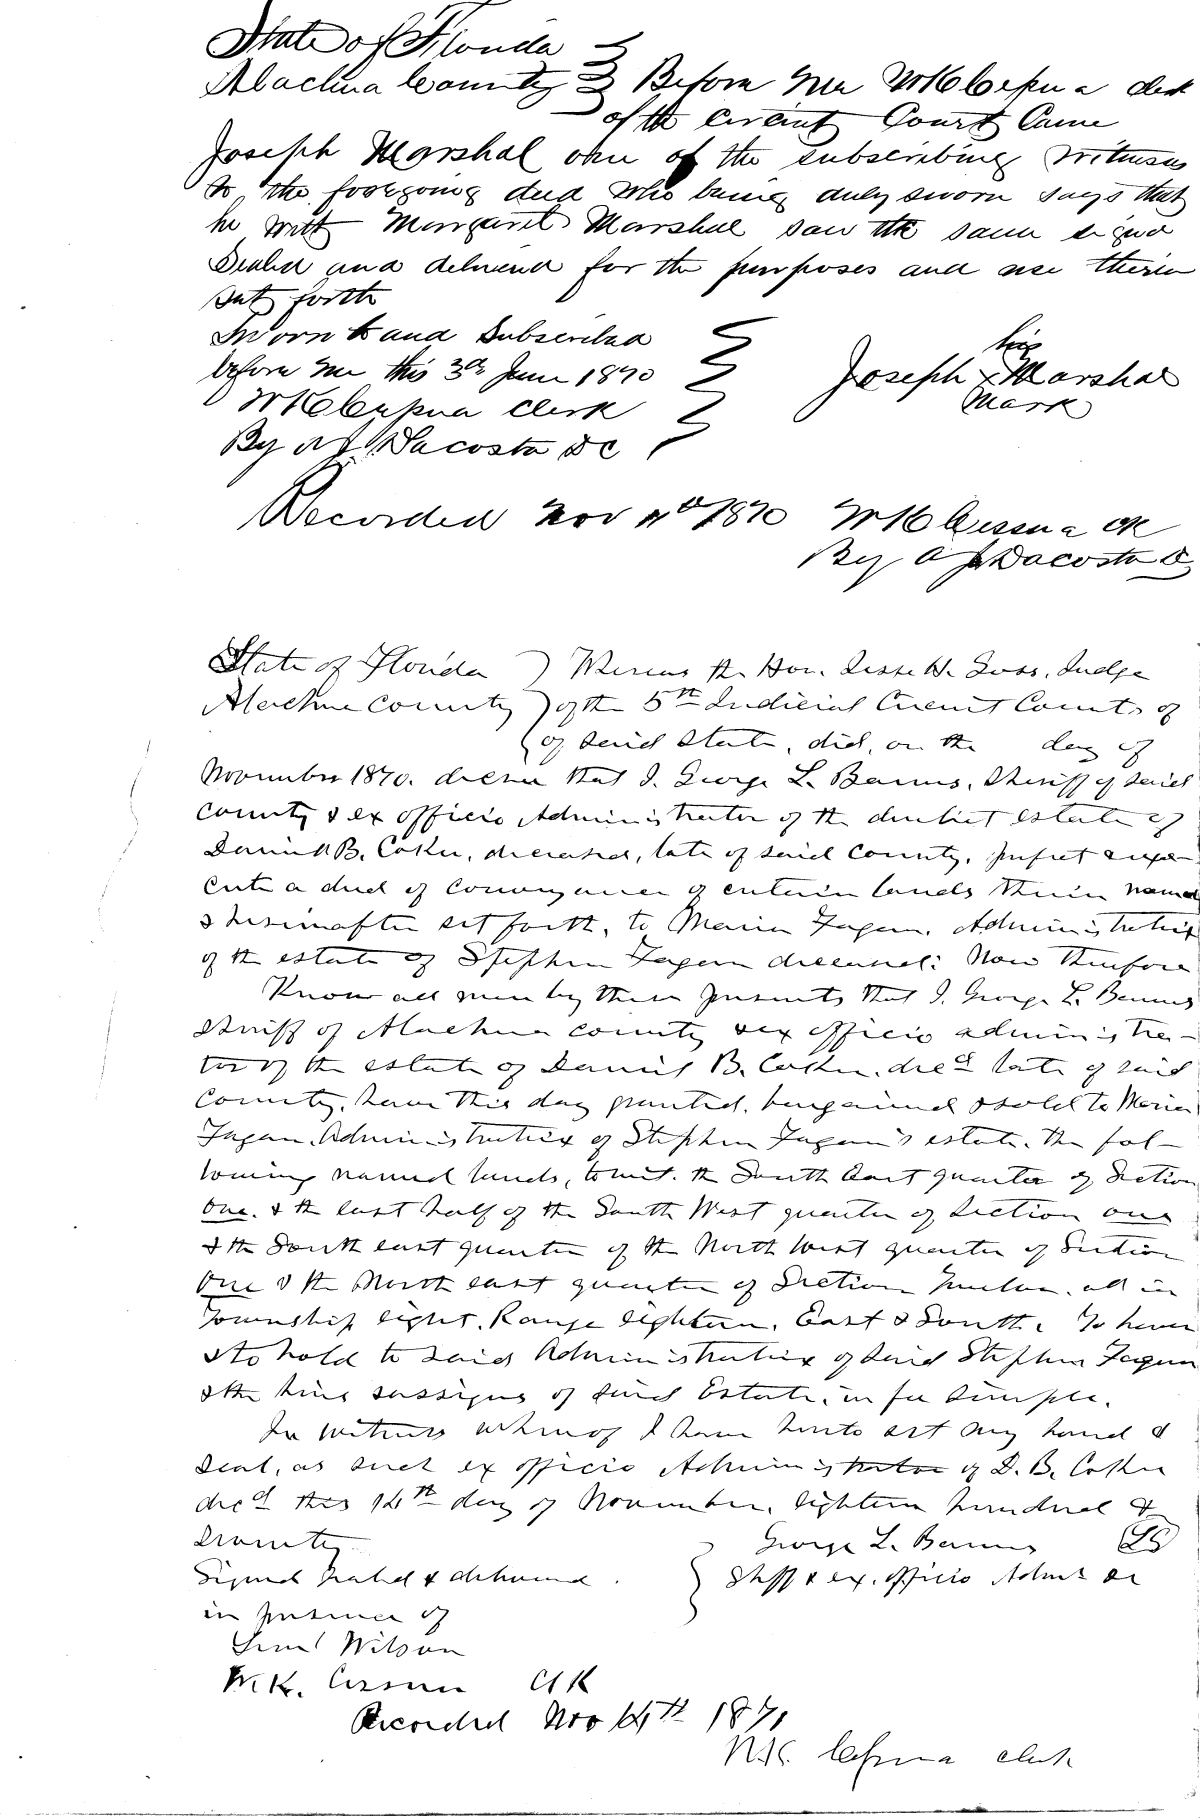 State of Florida
Alachua County } Before me W K Cessna clerk
of the circuit Court Came
Joseph Marshal one of the subscribing witnesses
to the foregoing deed who being duly sworn says that
he with Margaret Marshal saw the same signed
Sealed and delivered for the purposes and use therein
set forth
Sworn to and Subscribed
before me this 3rd June 1870
his
Joseph x Marshal
mark
W K Cessna Clerk
By A J Dacosta DC
Recorded Nov 1870 W K Cessna Clk
By A J Dacosta D
State of Florida ) Whereas the Hon. Jesse H. Goss, Judge
Alachua County ) of the 5th Judicial Circuit Courts of
of said State, did, on the day of
November 1870. decree that I. George L. Barnes, Sheriff of said
County & ex officio Administrator of the derelict estate of
Daniel B. Coker, deceased, late of said County, perfect & exe-
cute a deed of conveyance of certain lands therein named
& hereinafter set forth, to Maria Fagan, Administratrix
of the estate of Stephen Fagan deceased: Now therefore
Know all men by these presents that I. George L. Barnes
Sheriff of Alachua County & ex officio administra-
tor of the estate of Daniel B. Coker, decd late of said
County, have this day granted, bargained & sold to Maria
Fagan, Administratrix of Stephen Fagan's estate, the fol-
lowing named lands, to wit. the South East quarter of Section
one. & the east half of the South West quarter of Section one
& the South east quarter of the North West quarter of Section
one & the North east quarter of Section twelve, all in
Township eight, Range eighteen, East & South. To have
& to hold to said Administratrix of said Stephen Fagan
& the heirs & assigns of said Estate, in fee simple.
In witness whereof I have hereto set my hand &
seal, as such ex officio Administrator of D. B. Coker
decd this 14th day of November, eighteen hundred &
seventy
George L. Barnes LS
Signed Sealed & delivered
Shff & ex. officio Admr
in presence of
Saml Wilson
W. K. Cessna Clk
Recorded Nov 14th 1870
W. K. Cessna clerk